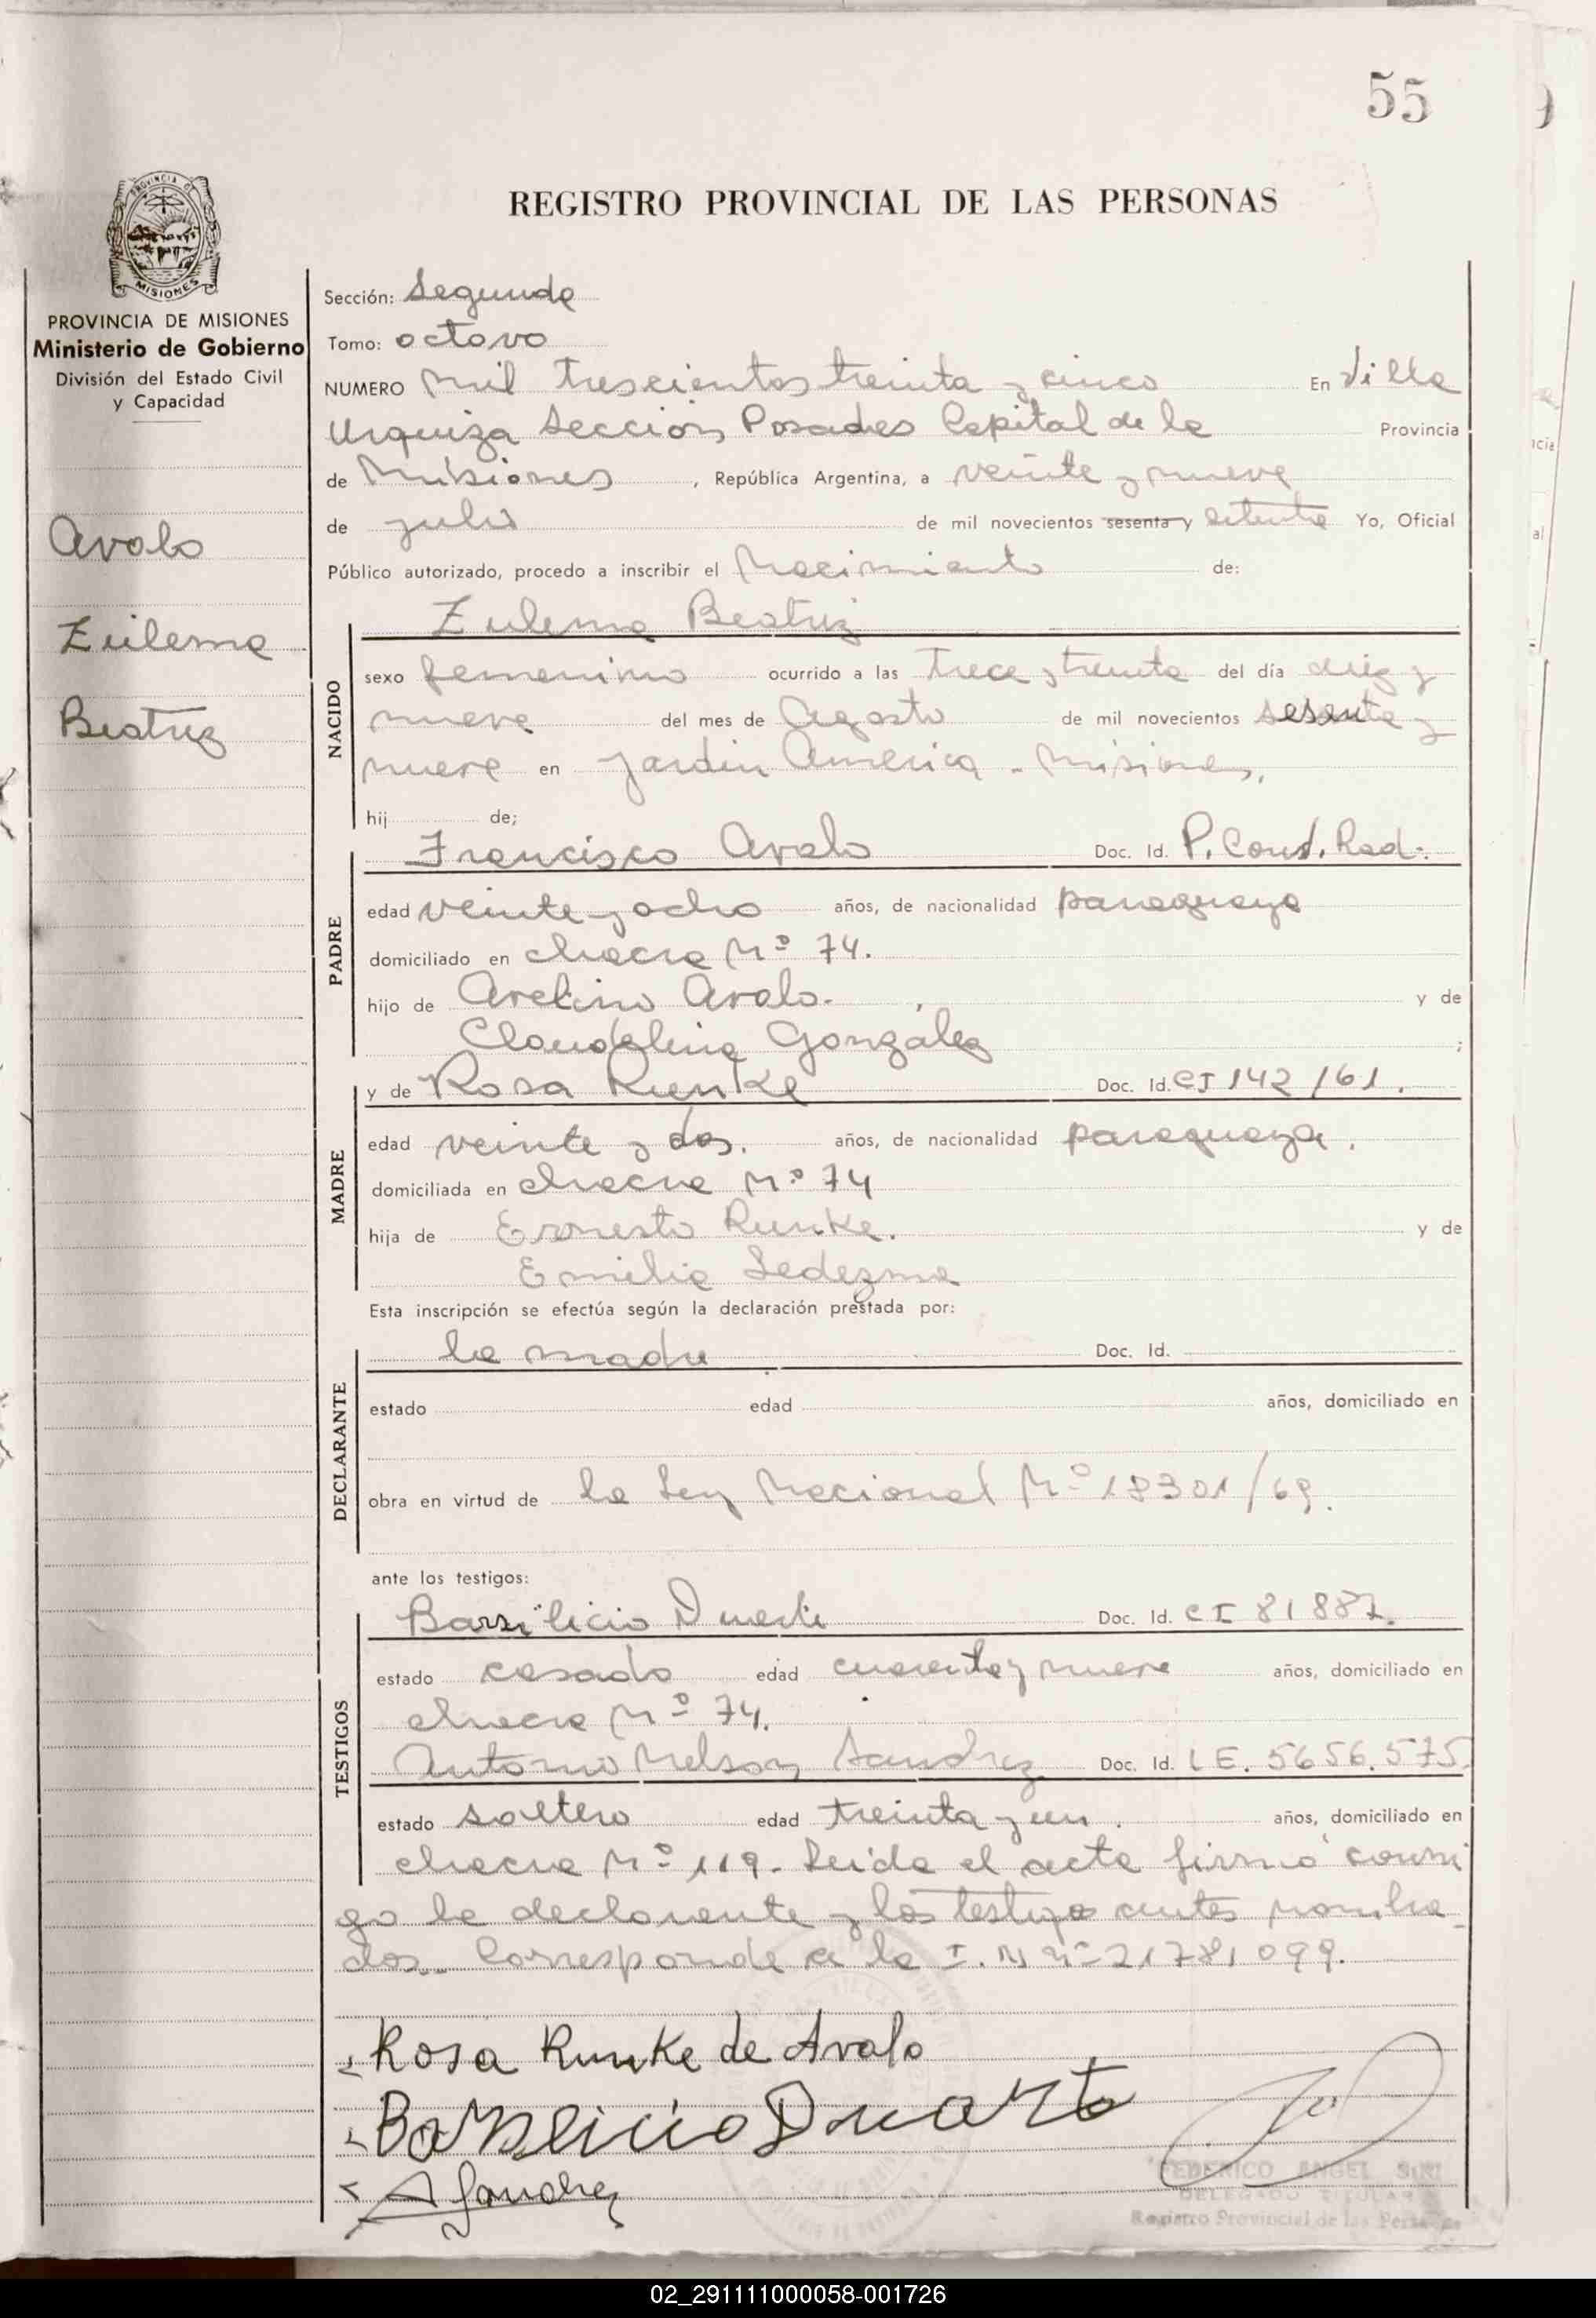 55
REGISTRO PROVINCIAL DE LAS PERSONAS
PROVINCIA DE MISIONES
Ministerio de Gobierno
División del Estado Civil
y Capacidad
Avalo
Zulema
Beatriz
Sección: Segunda
Tomo: octavo
NUMERO Mil trescientos treinta y cinco En Villa
Urquiza Sección Posadas Capital de la Provincia
de Misiones, República Argentina, a veinte y nueve
de julio de mil novecientos sesenta y setenta Yo, Oficial
Público autorizado, procedo a inscribir el Nacimiento de:
Zulema Beatriz
NACIDO
sexo femenino ocurrido a las trece y treinta del día diez y
nueve del mes de Agosto de mil novecientos sesenta y
nueve en Jardin America - Misiones,
hij de;
Francisco Avalo Doc. Id. P. Cons. Rad.
PADRE
edad veinte y ocho años, de nacionalidad paraguaya
domiciliado en chacra Nº 74.
hijo de Avelino Avalo. y de
Claudelina González ;
y de Rosa Runke Doc. Id. CI 142/61.
MADRE
edad veinte y dos. años, de nacionalidad paraguaya.
domiciliada en chacra Nº 74
hija de Ernesto Runke. y de
Emilia Ledezma
Esta inscripción se efectúa según la declaración prestada por:
la madre Doc. Id.
DECLARANTE
estado edad años, domiciliado en
obra en virtud de la Ley Nacional Nº 18301/69.
ante los testigos:
Barsilicio Duarte Doc. Id. CI 81887.
TESTIGOS
estado casado edad cuarenta y nueve años, domiciliado en
chacra Nº 74.
Antonio Nelson Sandrez Doc. Id. LE. 5656.575.
estado soltero edad treinta y un. años, domiciliado en
chacra Nº 119. Leida el acta firmó conmi
go la declarante y los testigos antes nombra
dos. Corresponde a la I.N nº 21781099.
Rosa Runke de Avalo
Barsilicio Duarte
FEDERICO ANGEL
DELEGADO TITULAR
Registro Provincial de las Personas
02_291111000058-001726